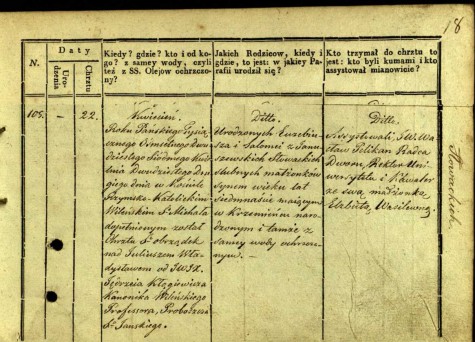 18
N.
Daty
Urodzenia
Chrztu
Kiedy? gdzie? kto i od kogo? z samey wody, czyli też z SS. Olejow ochrzczony?
Jakich Rodzicow, kiedy i gdzie, to jest: w jakiey Parafii urodził się?
Kto trzymał do chrztu to jest: kto byli kumami i kto assystował mianowicie?
105.
—
22.
Kwiecień.
Roku Pańskiego Tysiącznego Ośmsetnego Dwudziestego Siódmego Kwietnia Dwudziestego Drugiego dnia w Kościele
Rzymsko-Katolickim
Wileńskim S. Michała
dopełnionym został
Chrztu S. obrządek
nad Juliuszem Władysławem od JWJX.
Jędrzeia Kłągiewicza
Kanonika Wileńskiego
Professora, Proboszcza
S. Jańskiego.
Ditto.
Urodzonych Euzebiusza i Salomei z Januszewskich Słowackich
ślubnych małżonków
Synem wieku lat
Siedmnaście maiącym
w Krzemieńcu narodzonym i tamże z
samey wody ochrzczonym. —
Ditto.
Assystowali, J.W. Wacław Pelikan Radca
Dworu, Rektor Uniwersytetu i Kawaler
ze swą małżonką
Elżbietą, Wasilewną
Słowackich.